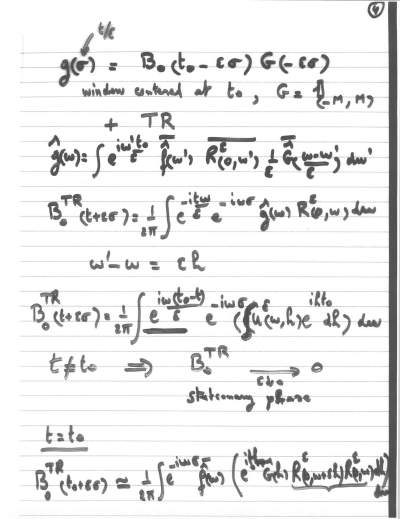 4
t/ε
g(σ) = B₀(t₀ - εσ) G(-εσ)
window centered at t₀, G = 1_[-M, M]
+ TR
ĝ(ω) = ∫ e^{iω't₀/ε} \overline{f̂(ω')} \overline{R^ε(0,ω')} 1/ε \overline{Ĝ((ω-ω')/ε)} dω'
B₀^TR(t+εσ) = 1/2π ∫ e^{-itω/ε} e^{-iωσ} ĝ(ω) R^ε(0,ω) dω
ω'-ω = εh
B₀^TR(t+εσ) = 1/2π ∫ e^{iω(t₀-t)/ε} e^{-iωσ} (∫ U^ε(ω,h) e^{iht₀} dh) dω
t≠t₀ ⇒ B₀^TR → 0
ε↓0
stationary phase
t=t₀
B₀^TR(t₀+εσ) ≃ 1/2π ∫ e^{-iωσ} \overline{f̂(ω)} (∫ e^{iht₀} G(h) R^ε(0,ω+εh) R^ε(0,ω) dh) dω